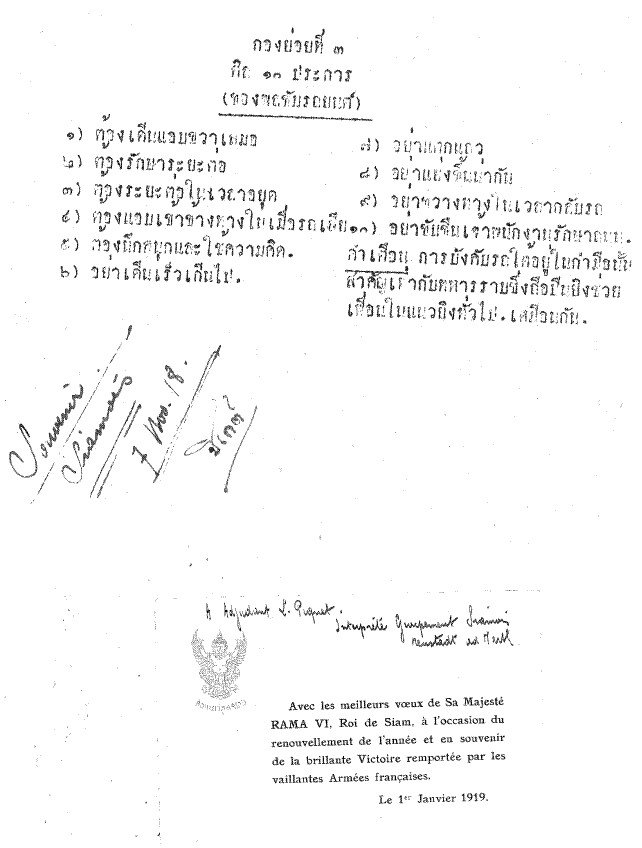 กองย่อยที่ ๓
ศีล ๑๐ ประการ
(ของพลขับรถยนต์)
๑) ต้องเดินแอบขวาเสมอ
๒) ต้องรักษาระยะต่อ
๓) ต้องระยะต่อในเวลาหยุด
๔) ต้องแอบเข้าข้างทางในเมื่อรถเสีย
๕) ต้องนึกสนุกและใช้ความคิด.
๖) อย่าเดินเร็วเกินไป.
๗) อย่าแตกแถว
๘) อย่าแย่งขึ้นหน้ากัน
๙) อย่าขวางทางในเวลากลับรถ
๑๐) อย่าขับขืนเจ้าพนักงานรักษาถนน.
คำเตือน การบังคับรถให้อยู่ในกำมือนั้น
สำคัญเท่ากับทหารราบซึ่งถือปืนยิงช่วย
เพื่อนในแนวยิงทั่วไป. เหมือนกัน.
Souvenir
Siamois
7 Nov. 18.
A Adjudant L. Piquet
Interprète Groupement Siamois
Neustadt
Avec les meilleurs vœux de Sa Majesté
RAMA VI, Roi de Siam, à l'occasion du
renouvellement de l'année et en souvenir
de la brillante Victoire remportée par les
vaillantes Armées françaises.
Le 1er Janvier 1919.